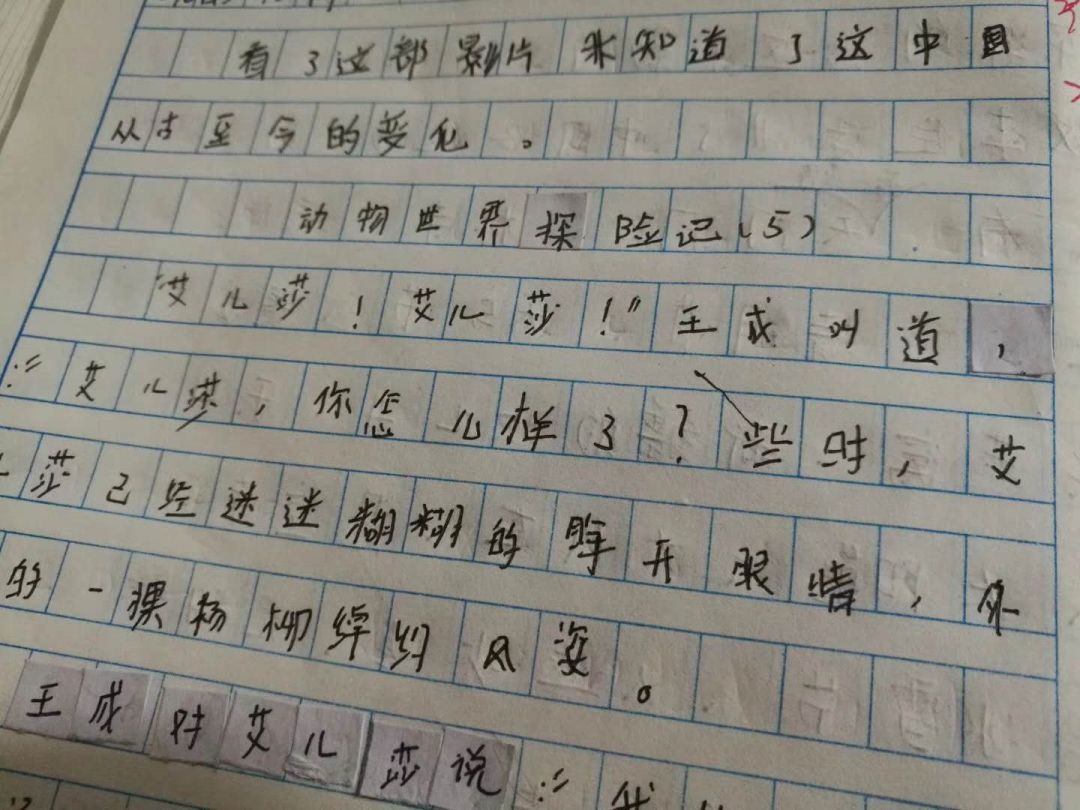 看了这部影片 来知道了这中国
从古至今的变化。
动物世界探险记(5)
"艾儿莎！艾儿莎！"王成叫道，
："艾儿莎，你怎儿样了？些时，艾
莎已经迷迷糊糊的睁开眼睛，外
的一棵杨柳绰约风姿。
王成对艾儿莎说："